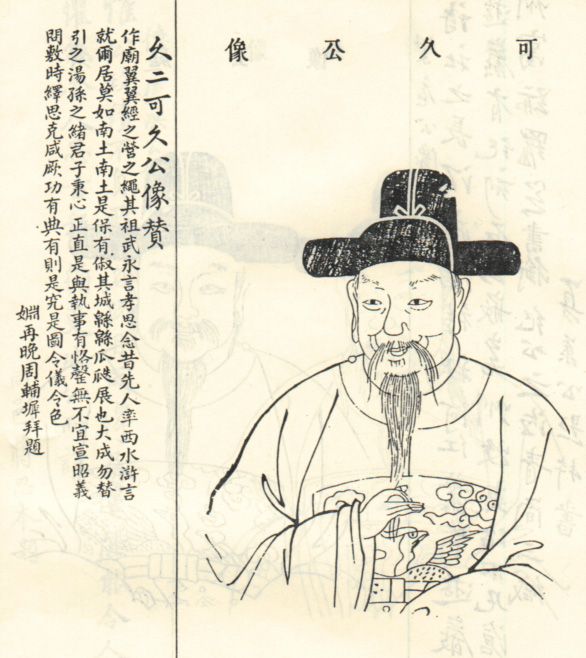 可久公像
久二可久公像贊
作廟翼翼經之營之繩其祖武永言孝思念昔先人率西水滸言
就爾居莫如南土南土是保有俶其城緜緜瓜瓞展也大成勿替
引之湯孫之緒君子秉心正直是與執事有恪罄無不宜宣昭義
問敷時繹思克咸厥功有典有則是究是圖令儀令色
婣再晚周輔墀拜題